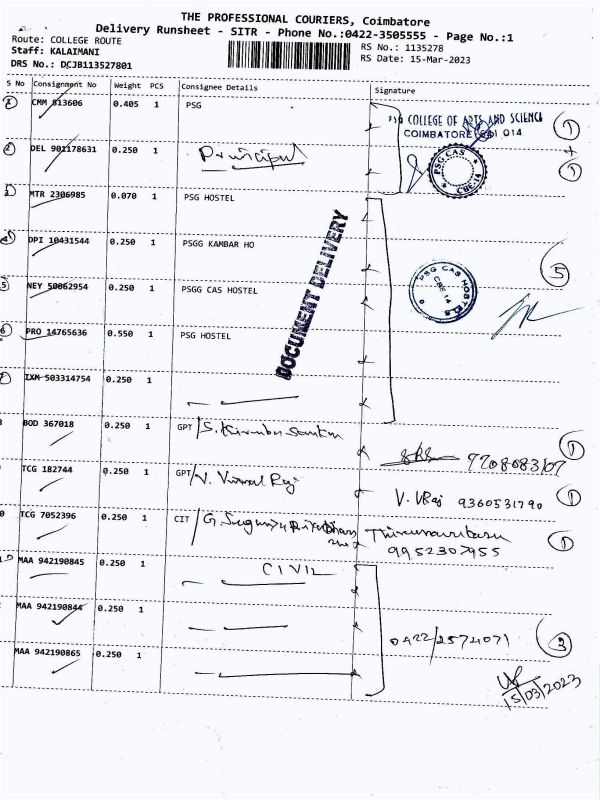 THE PROFESSIONAL COURIERS, Coimbatore
Delivery Runsheet - SITR - Phone No.:0422-3505555 - Page No.:1
Route: COLLEGE ROUTE
Staff: KALAIMANI
DRS No.: DCJB113527801
RS No.: 1135278
RS Date: 15-Mar-2023
S No Consignment No Weight PCS Consignee Details Signature
CMM 813606 0.405 1 PSG
PSG COLLEGE OF ARTS AND SCIENCE
COIMBATORE 641 014
1
+
DEL 901178631 0.250 1 Principal
PSG CAS
CBE-14
1
MTR 2306985 0.070 1 PSG HOSTEL
DPI 10431544 0.250 1 PSGG KAMBAR HO
5
NEY 50862954 0.250 1 PSGG CAS HOSTEL
PSG CAS HOSTELS
CBE 14
DOCUMENT DELIVERY
PRO 14765636 0.550 1 PSG HOSTEL
IXM 503314754 0.250 1
BOD 367018 0.250 1 GPT/S.
1
TCG 182744 0.250 1 GPT/V. Vimal Raj
V. VRaj 9360531790 1
TCG 7052396 0.250 1 CIT/G.
9952307955 1
MAA 942190845 0.250 1 CIVIL
MAA 942190844 0.250 1
0422/2574071 3
MAA 942190865 0.250 1
15/03/2023